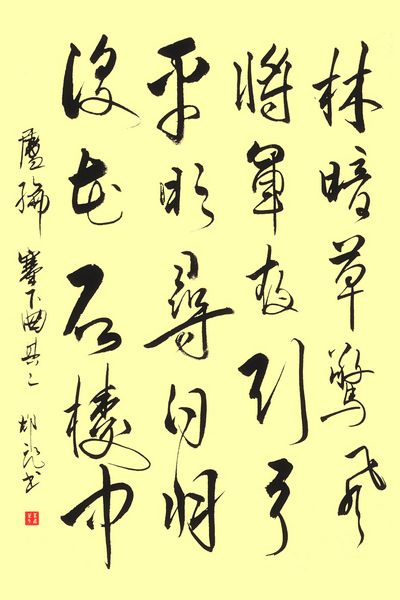 林暗草驚風
將軍夜引弓
平明尋白羽
没在石棱中
盧綸 塞下曲其二 书